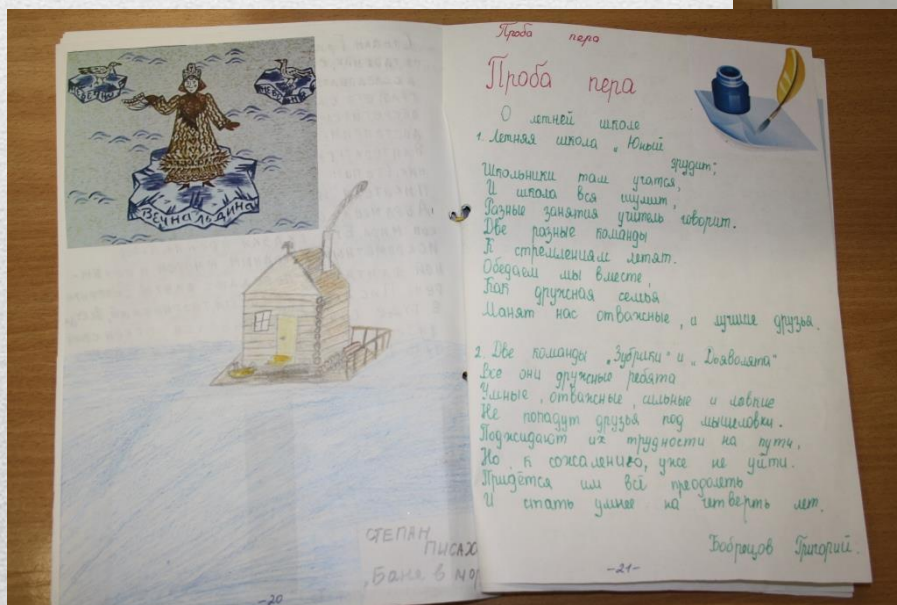 ВЕЧНА ЛЬДИНА
СТЕПАН
ПИСАХ
„Баня в мор
-20
Проба пера
Проба пера
О летней школе
1. Летняя школа „Юный
эрудит“;
Школьники там учатся,
И школа вся шумит,
Разные занятия учитель говорит.
Две разные команды
К стремлениям летят.
Обедаем мы вместе,
Как дружная семья
Манят нас отважные, и лучшие друзья.
2. Две команды „Зубрики“ и „Дьяволята“
Все они дружные ребята
Умные, отважные, сильные и ловкие
Не попадут друзья под мышеловки.
Поджидают их трудности на пути,
Но, к сожалению, уже не уйти.
Придётся им всё преодолеть
И стать умнее на четверть лет.
Григорий.
-21-